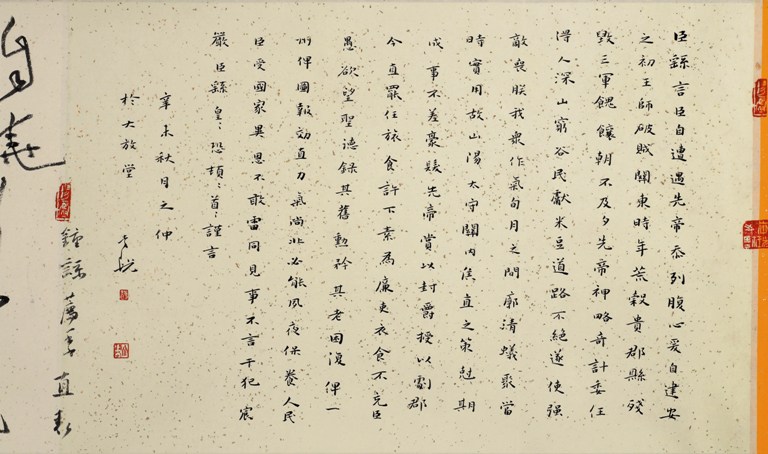 臣繇言臣自遭遇先帝忝列腹心爰自建安
之初王師破賊關東時年荒穀貴郡縣殘
毀三軍餽饟朝不及夕先帝神略奇計委任
得人深山窮谷民獻米豆道路不絕遂使强
敵喪膽我衆作氣旬月之間廓清蟻聚當
時實用故山陽太守關內侯直之策尅期
成事不差豪髮先帝賞以封爵授以劇郡
今直罷任旅食許下素為廉吏衣食不充臣
愚欲望聖德錄其舊勳矜其老困復俾一
州俾圖報效直力氣尚壯必能夙夜保養人民
臣受國家異恩不敢雷同見事不言干犯宸
嚴臣繇皇皇恐頓頓首首謹言
辛未秋月之仲
於大放堂
鍾繇薦季直表